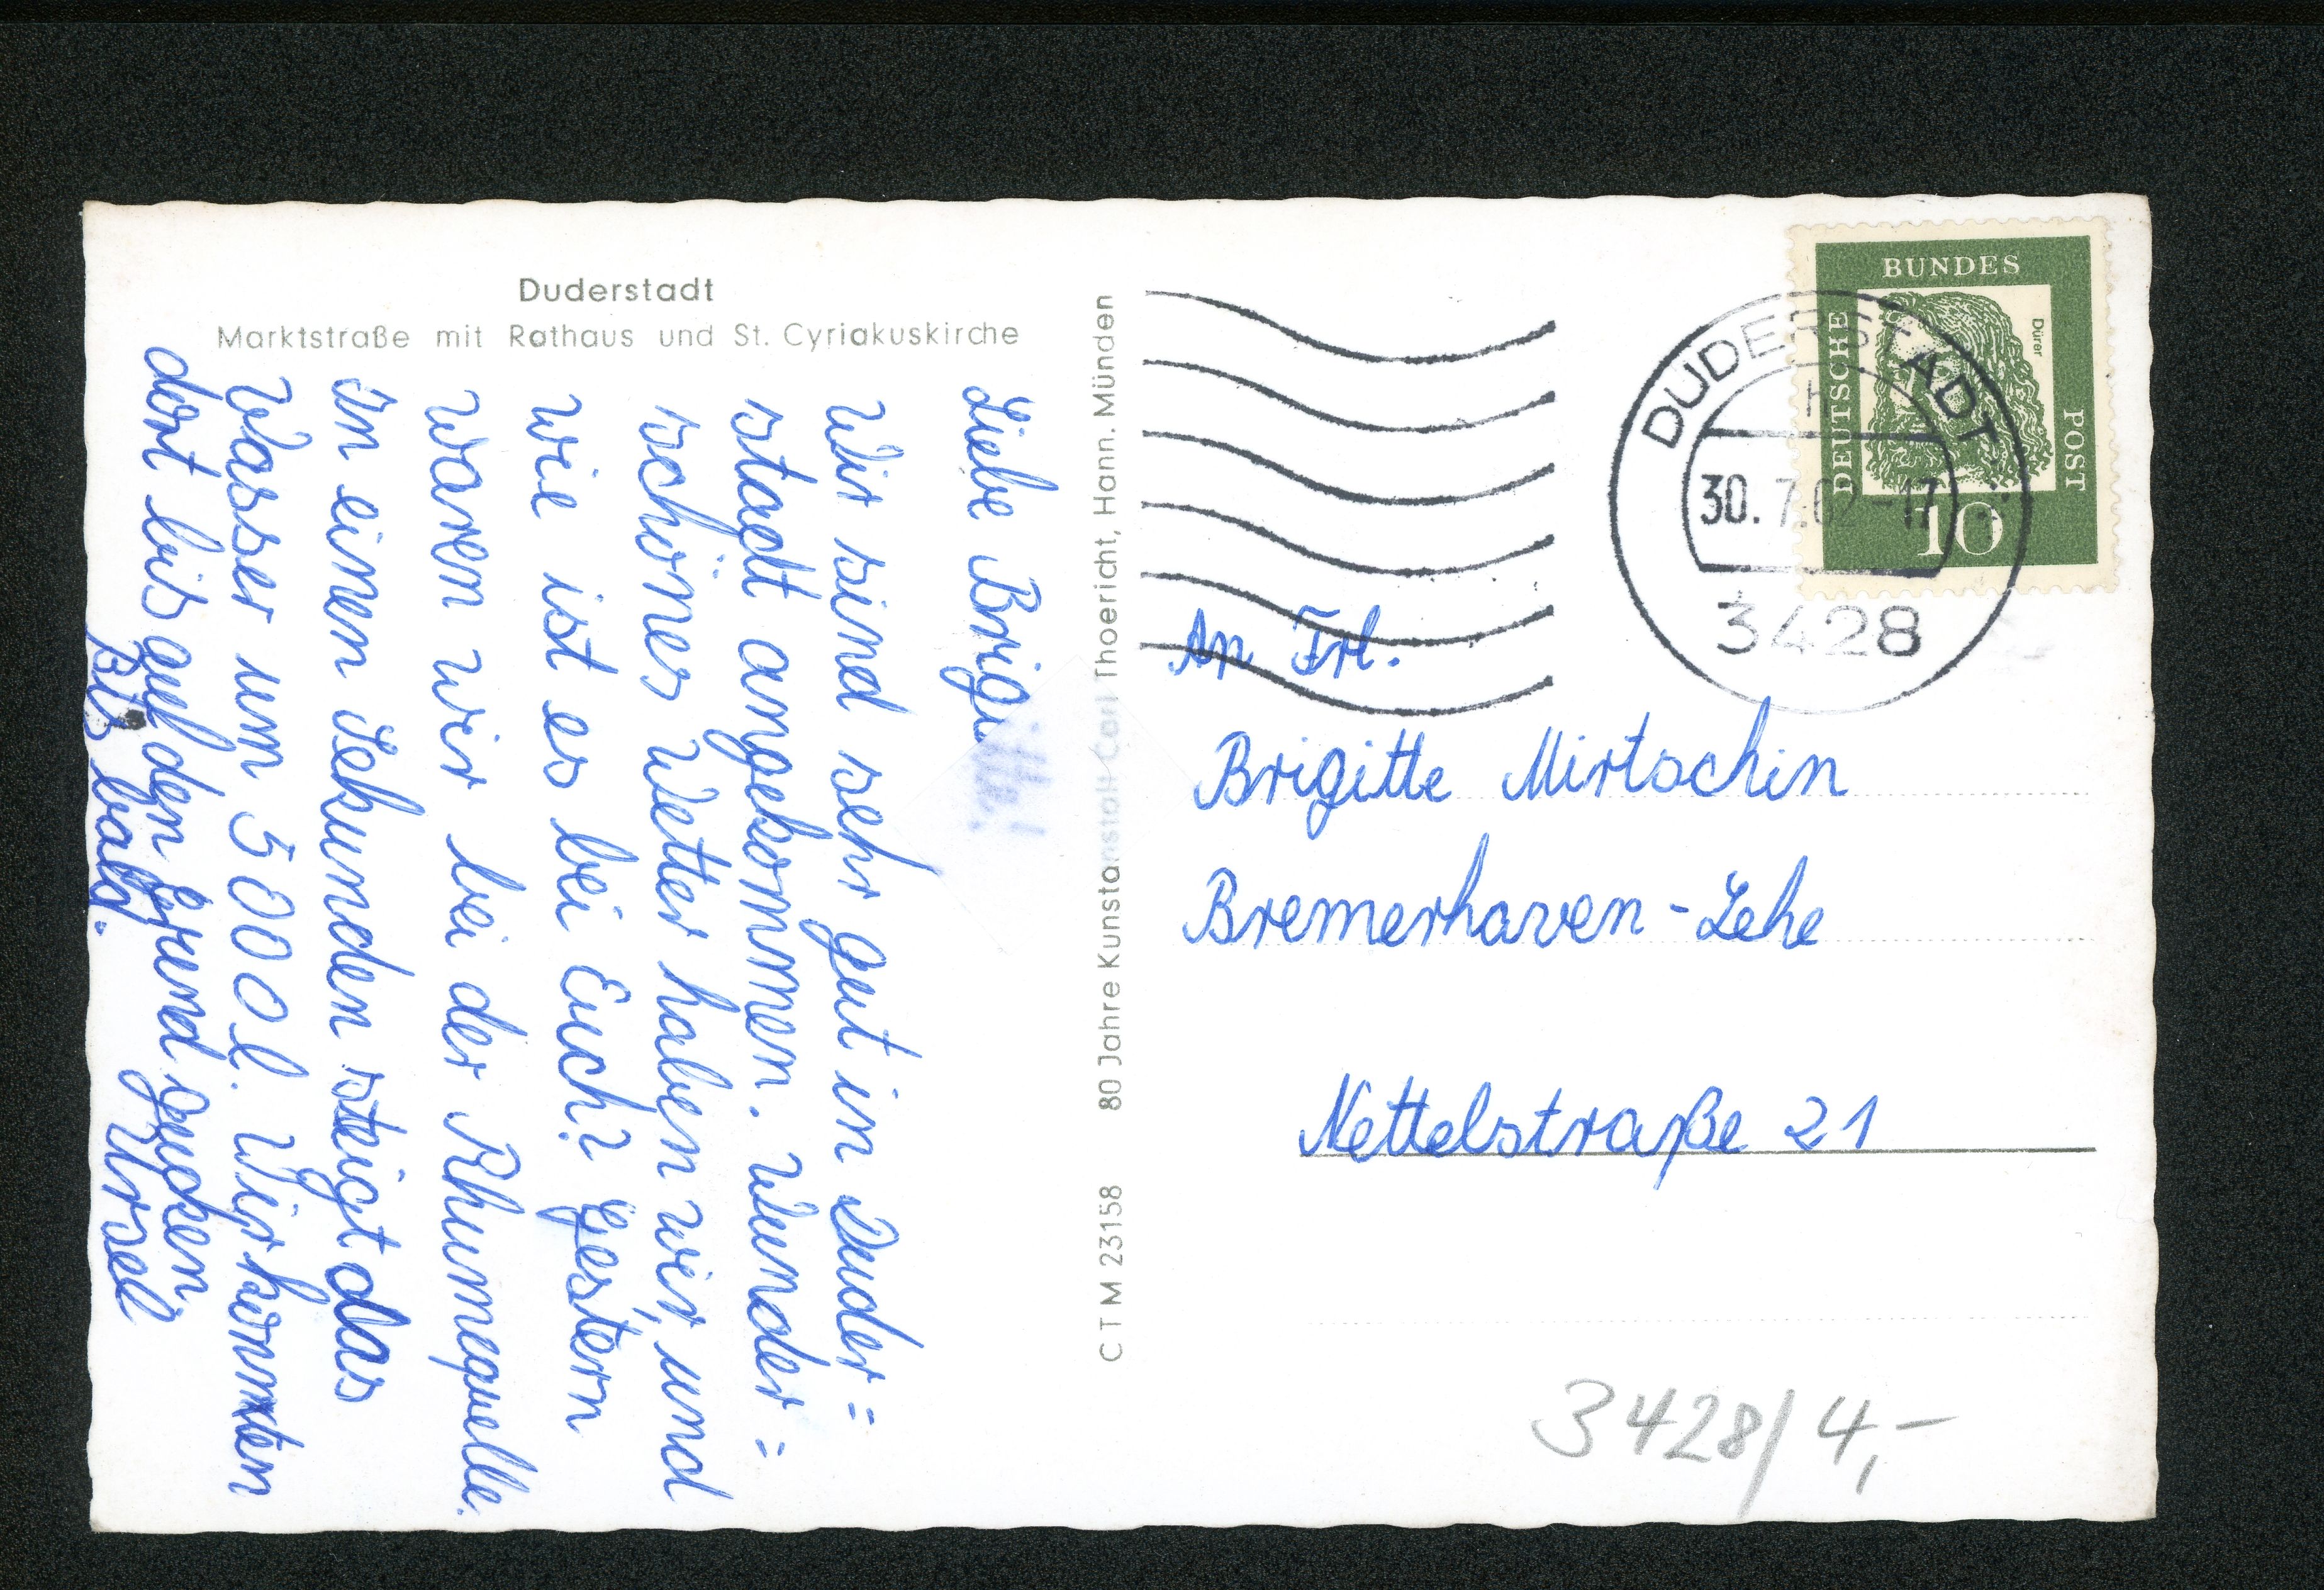 Duderstadt
Marktstraße mit Rathaus und St. Cyriakuskirche
Liebe
Wir sind sehr gut in Duder=
stadt angekommen. Wunder=
schönes Wetter haben wir, und
wie ist es bei Euch? Gestern
waren wir bei der Rhumequelle.
In einen Sekunden steigt das
Wasser um 5000l. Wir konnten
dort bis auf den Grund gucken
Bis bald.
Ursel
80 Jahre Kunstanstalt Carl Thoericht, Hann. Münden
C T M 23158
BUNDES
DEUTSCHE
POST
Dürer
10
DUDERSTADT
h
30.7.62-17
3428
An Frl.
Brigitte Mirtschin
Bremerhaven-Lehe
Nettelstraße 21
3428/4,-